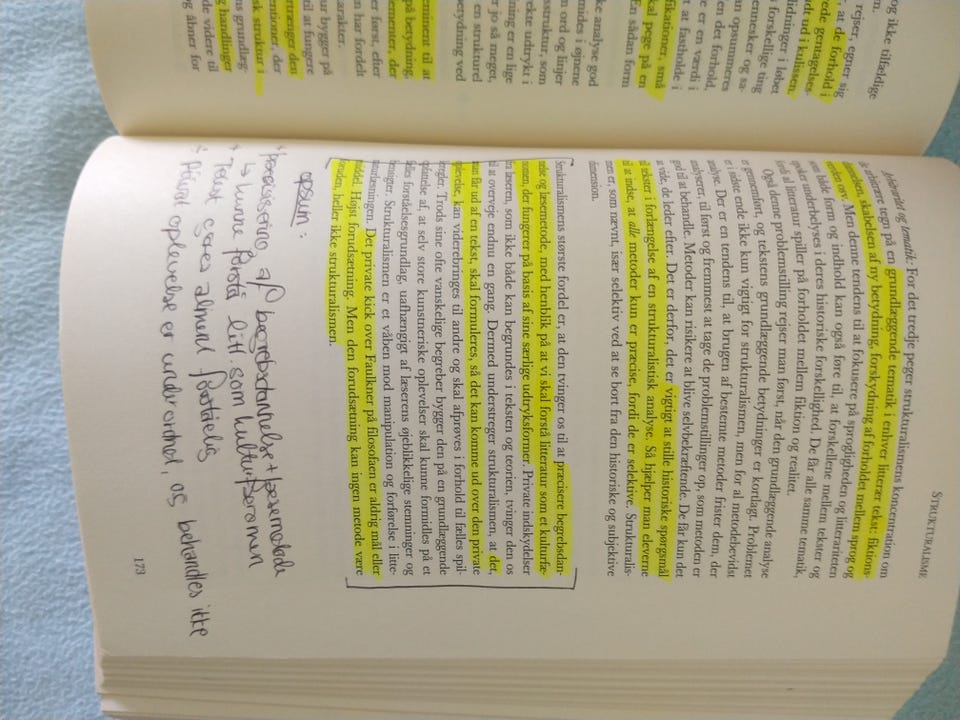 og ikke tilfældige
rejser, egner sig
at de forhold i
rede gentagelses-
ud i kulissen.
i løbet
og sa-
opsummeres
en det forhold,
e er en værdi i
t at fastholde i
fikationer, små
kal pege på en
En sådan form
ke analyse god
mides i øjnene
ning er en lige
rekte udtrykt i
nstruktur, som
m ord og linjer
er jo så meget,
en strukturel
ved
eminent til at
på betydning,
ementer, der
først, efter
an har fordelt
arakter.
ur bygger på
til at fungere
den
der
sk struktur i
ns grundlæg-
g handlinger
de videre til
og åbner for
STRUKTURALISME
og tematik: For det tredje peger strukturalismens koncentration om
tegn på en grundlæggende tematik i enhver litterær tekst: fiktions-
skabelsen af ny betydning, forskydning af forholdet mellem sprog og
Men denne tendens til at fokusere på sprogligheden og litterariteten
både form og indhold kan også føre til, at forskellene mellem tekster og
epoker underbelyses i deres historiske forskellighed. De får alle samme tematik,
fordi al litteratur spiller på forholdet mellem fiktion og realitet.
Også denne problemstilling rejser man først, når den grundlæggende analyse
er gennemført, og tekstens grundlæggende betydninger er kortlagt. Problemet
er i sidste ende ikke kun vigtigt for strukturalismen, men for al metodebevidst
analyse. Der er en tendens til, at brugen af bestemte metoder frister dem, der
analyserer, til først og fremmest at tage de problemstillinger op, som metoden er
god til at behandle. Metoder kan risikere at blive selvbekræftende. De får kun det
at vide, de leder efter. Det er derfor, det er vigtigt at stille historiske spørgsmål
til tekster i forlængelse af en strukturalistisk analyse. Så hjælper man eleverne
til at indse, at alle metoder kun er præcise, fordi de er selektive. Strukturalis-
men er, som nævnt, især selektiv ved at se bort fra den historiske og subjektive
dimension.
Strukturalismens største fordel er, at den tvinger os til at præcisere begrebsdan-
nelse og læsemetode, med henblik på at vi skal forstå litteratur som et kulturfæ-
nomen, der fungerer på basis af sine særlige udtryksformer. Private indskydelser
fra læseren, som ikke både kan begrundes i teksten og teorien, tvinger den os
til at overveje endnu en gang. Dermed understreger strukturalismen, at det,
man får ud af en tekst, skal formuleres, så det kan komme ud over den private
oplevelse, kan viderebringes til andre og skal afprøves i forhold til fælles spil-
leregler. Trods sine ofte vanskelige begreber bygger den på en grundlæggende
opfattelse af, at selv store kunstneriske oplevelser skal kunne formidles på et
fælles forståelsesgrundlag, uafhængigt af læserens øjeblikkelige stemninger og
luftninger. Strukturalismen er et våben mod manipulation og forførelse i litte-
raturlæsningen. Det private kick over Faulkner på filosofaen er aldrig mål eller
middel. Højst forudsætning. Men den forudsætning kan ingen metode være
foruden, heller ikke strukturalismen.
opsum:
+ præcisering af begrebsdannelse + læsemetode
↳ kunne forstå litt som kulturfænomen
+ Tekst almen
÷ Privat oplevelse er underordnet, og behandles ikke
173